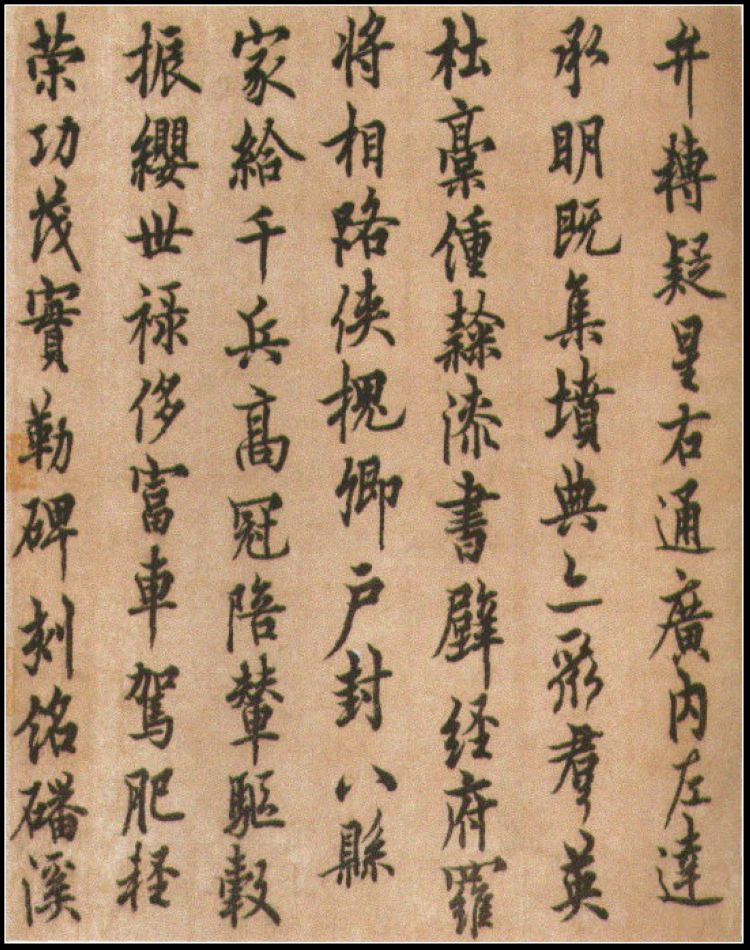 弁轉疑星右通廣內左達
承明既集墳典亦聚羣英
杜稾鍾隸漆書壁経府羅
将相路俠槐卿戶封八縣
家給千兵髙冠陪輦驅轂
振纓世禄侈富車駕肥軽
策功茂實勒碑刻銘磻溪